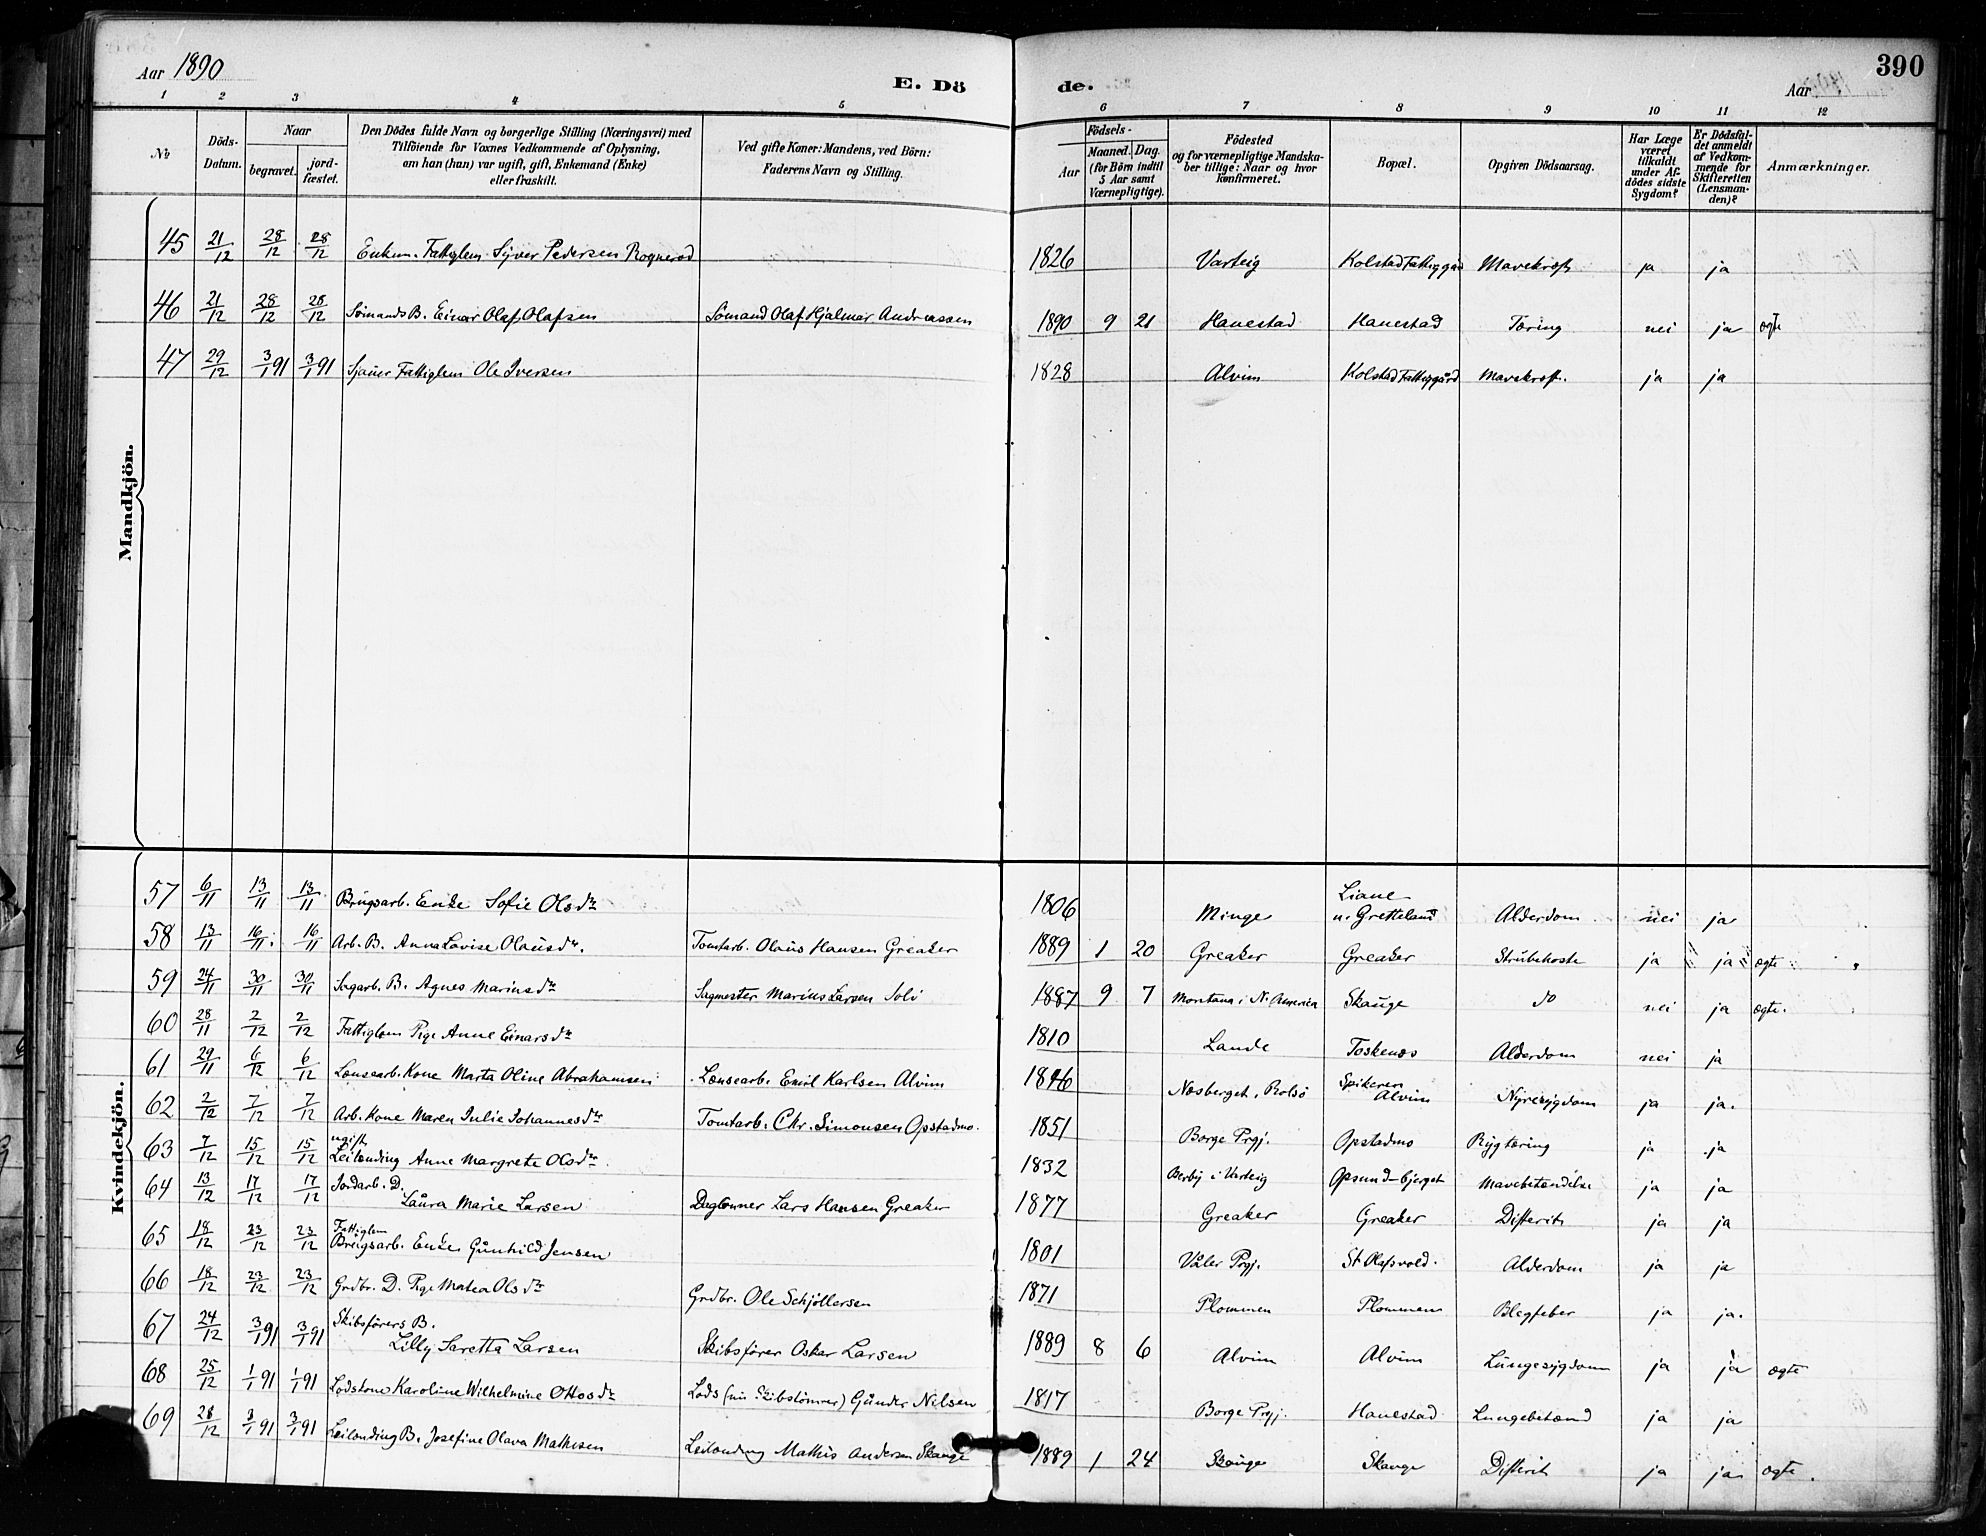 Aar 1890
E. Dö
de.
Aar
390
1 2 3 4 5 6 7 8 9 10 11 12
№
Döds-
Datum.
Naar
begravet.
jord-
fæstet.
Den Dödes fulde Navn og borgerlige Stilling (Næringsvei) med
Tilföiende for Voxnes Vedkommende af Oplysning,
om han (hun) var ugift, gift, Enkemand (Enke)
eller fraskilt.
Ved gifte Koner: Mandens, ved Börn:
Faderens Navn og Stilling.
Födsels-
Aar
Maaned. Dag.
(for Börn indtil
5 Aar samt
Værnepligtige).
Födested
og for værnepligtige Mandska-
ber tillige: Naar og hvor
konfirmeret.
Bopæl.
Opgiven Dödsaarsag.
Har Læge
været
tilkaldt
under Af-
dödes sidste
Sygdom?
Er Dödsfal-
det anmeldt
af Vedkom-
mende for
Skifteretten
(Lensman-
den)?
Anmærkninger.
Mandkjön.
45 21/12 28/12 28/12 Enkem. Fattiglem Syver Pedersen Rognerød 1826 Varteig Kolstad Fattiggård Mavekræft ja ja
46 21/12 28/12 28/12 Sømands B. Einar Olaf Olafsen Sømand Olaf Hjalmar Andreassen 1890 9 21 Hanestad Hanestad Tæring nei ja ægte
47 29/12 3/1 91 3/1 91 Sjauer Fattiglem Ole Iversen 1828 Alvim Kolstad Fattiggård Mavekræft. ja ja
Kvindekjön.
57 6/11 13/11 13/11 Brugsarb. Enke Sofie Olsdtr 1806 Minge Liane
u. Gretteland Alderdom nei ja
58 13/11 16/11 16/11 Arb. B. Anna Lovise Olausdtr. Tomtarb. Olaus Hansen Greaker 1889 1 20 Greaker Greaker Strubehoste ja ja ægte
59 24/11 30/11 30/11 Sagarb. B. Agnes Mariusdtr Sagmester Marius Larsen Soli 1887 9 7 Montana i N. America Skauge do nei ja ægte.
60 28/11 2/12 2/12 Fattiglem Pige Anne Einarsdtr 1810 Lande Toskenæs Alderdom nei ja
61 29/11 6/12 6/12 Lænsearb. Kone Marta Oline Abrahamsen Lænsearb. Emil Karlsen Alvim 1846 Næsberget, Rolsø Spikeren
Alvim Nyresygdom ja ja.
62 2/12 7/12 7/12 Arb. Kone Maren Julie Johannesdtr Tomtarb. Chr. Simonsen Opstadmo. 1851 Borge Prgj. Opstadmo Rygtæring ja ja
63 7/12 15/12 15/12 ugift
Leilending Anne Margrete Olsdtr. 1832 Berby i Varteig Opsund-bjerget Mavebetændelse ja ja
64 13/12 17/12 17/12 Jordarb. D.
Laura Marie Larsen Daglønner Lars Hansen Greaker 1877 Greaker Greaker Difterit ja ja
65 18/12 23/12 23/12 Fattiglem
Brugsarb. Enke Gunhild Jensen 1801 Våler Prgj. St. Olafsvold. Alderdom ja ja
66 18/12 23/12 23/12 Grdbr. D. Pige Matea Olsdtr Grdbr. Ole Schjøllersen 1871 Plommen Plommen Blegfeber ja ja.
67 24/12 3/1 91 3/1 91 Skibsførers B.
Lilly Saretta Larsen Skibsfører Oskar Larsen 1889 8 6 Alvim Alvim Lungesygdom ja ja ægte
68 25/12 1/1 91 1/1 91 Lodskone Karoline Wilhelmine Ottosdtr Lods (nu Skibstømrer) Gunder Nilsen 1817 Borge Prgj. Hanestad Lungebetænd ja ja
69 28/12 3/1 91 3/1 91 Leilending B. Josefine Olava Mathisen Leilending Mathis Andersen Skauge 1889 1 24 Skauge Skauge Difterit ja ja ægte.